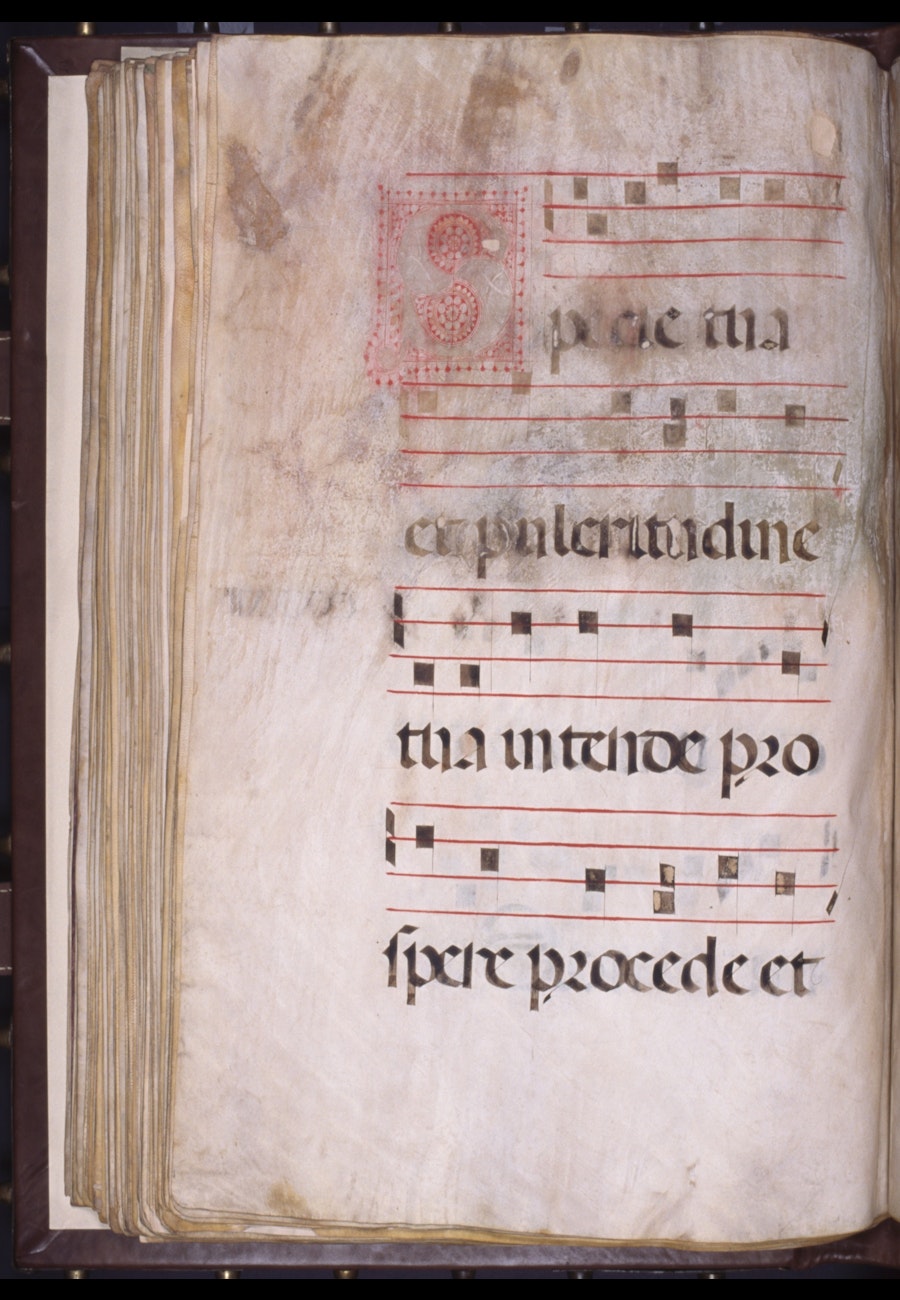 Specie tua
et pulcritudine
tua intende pro
spere procede et